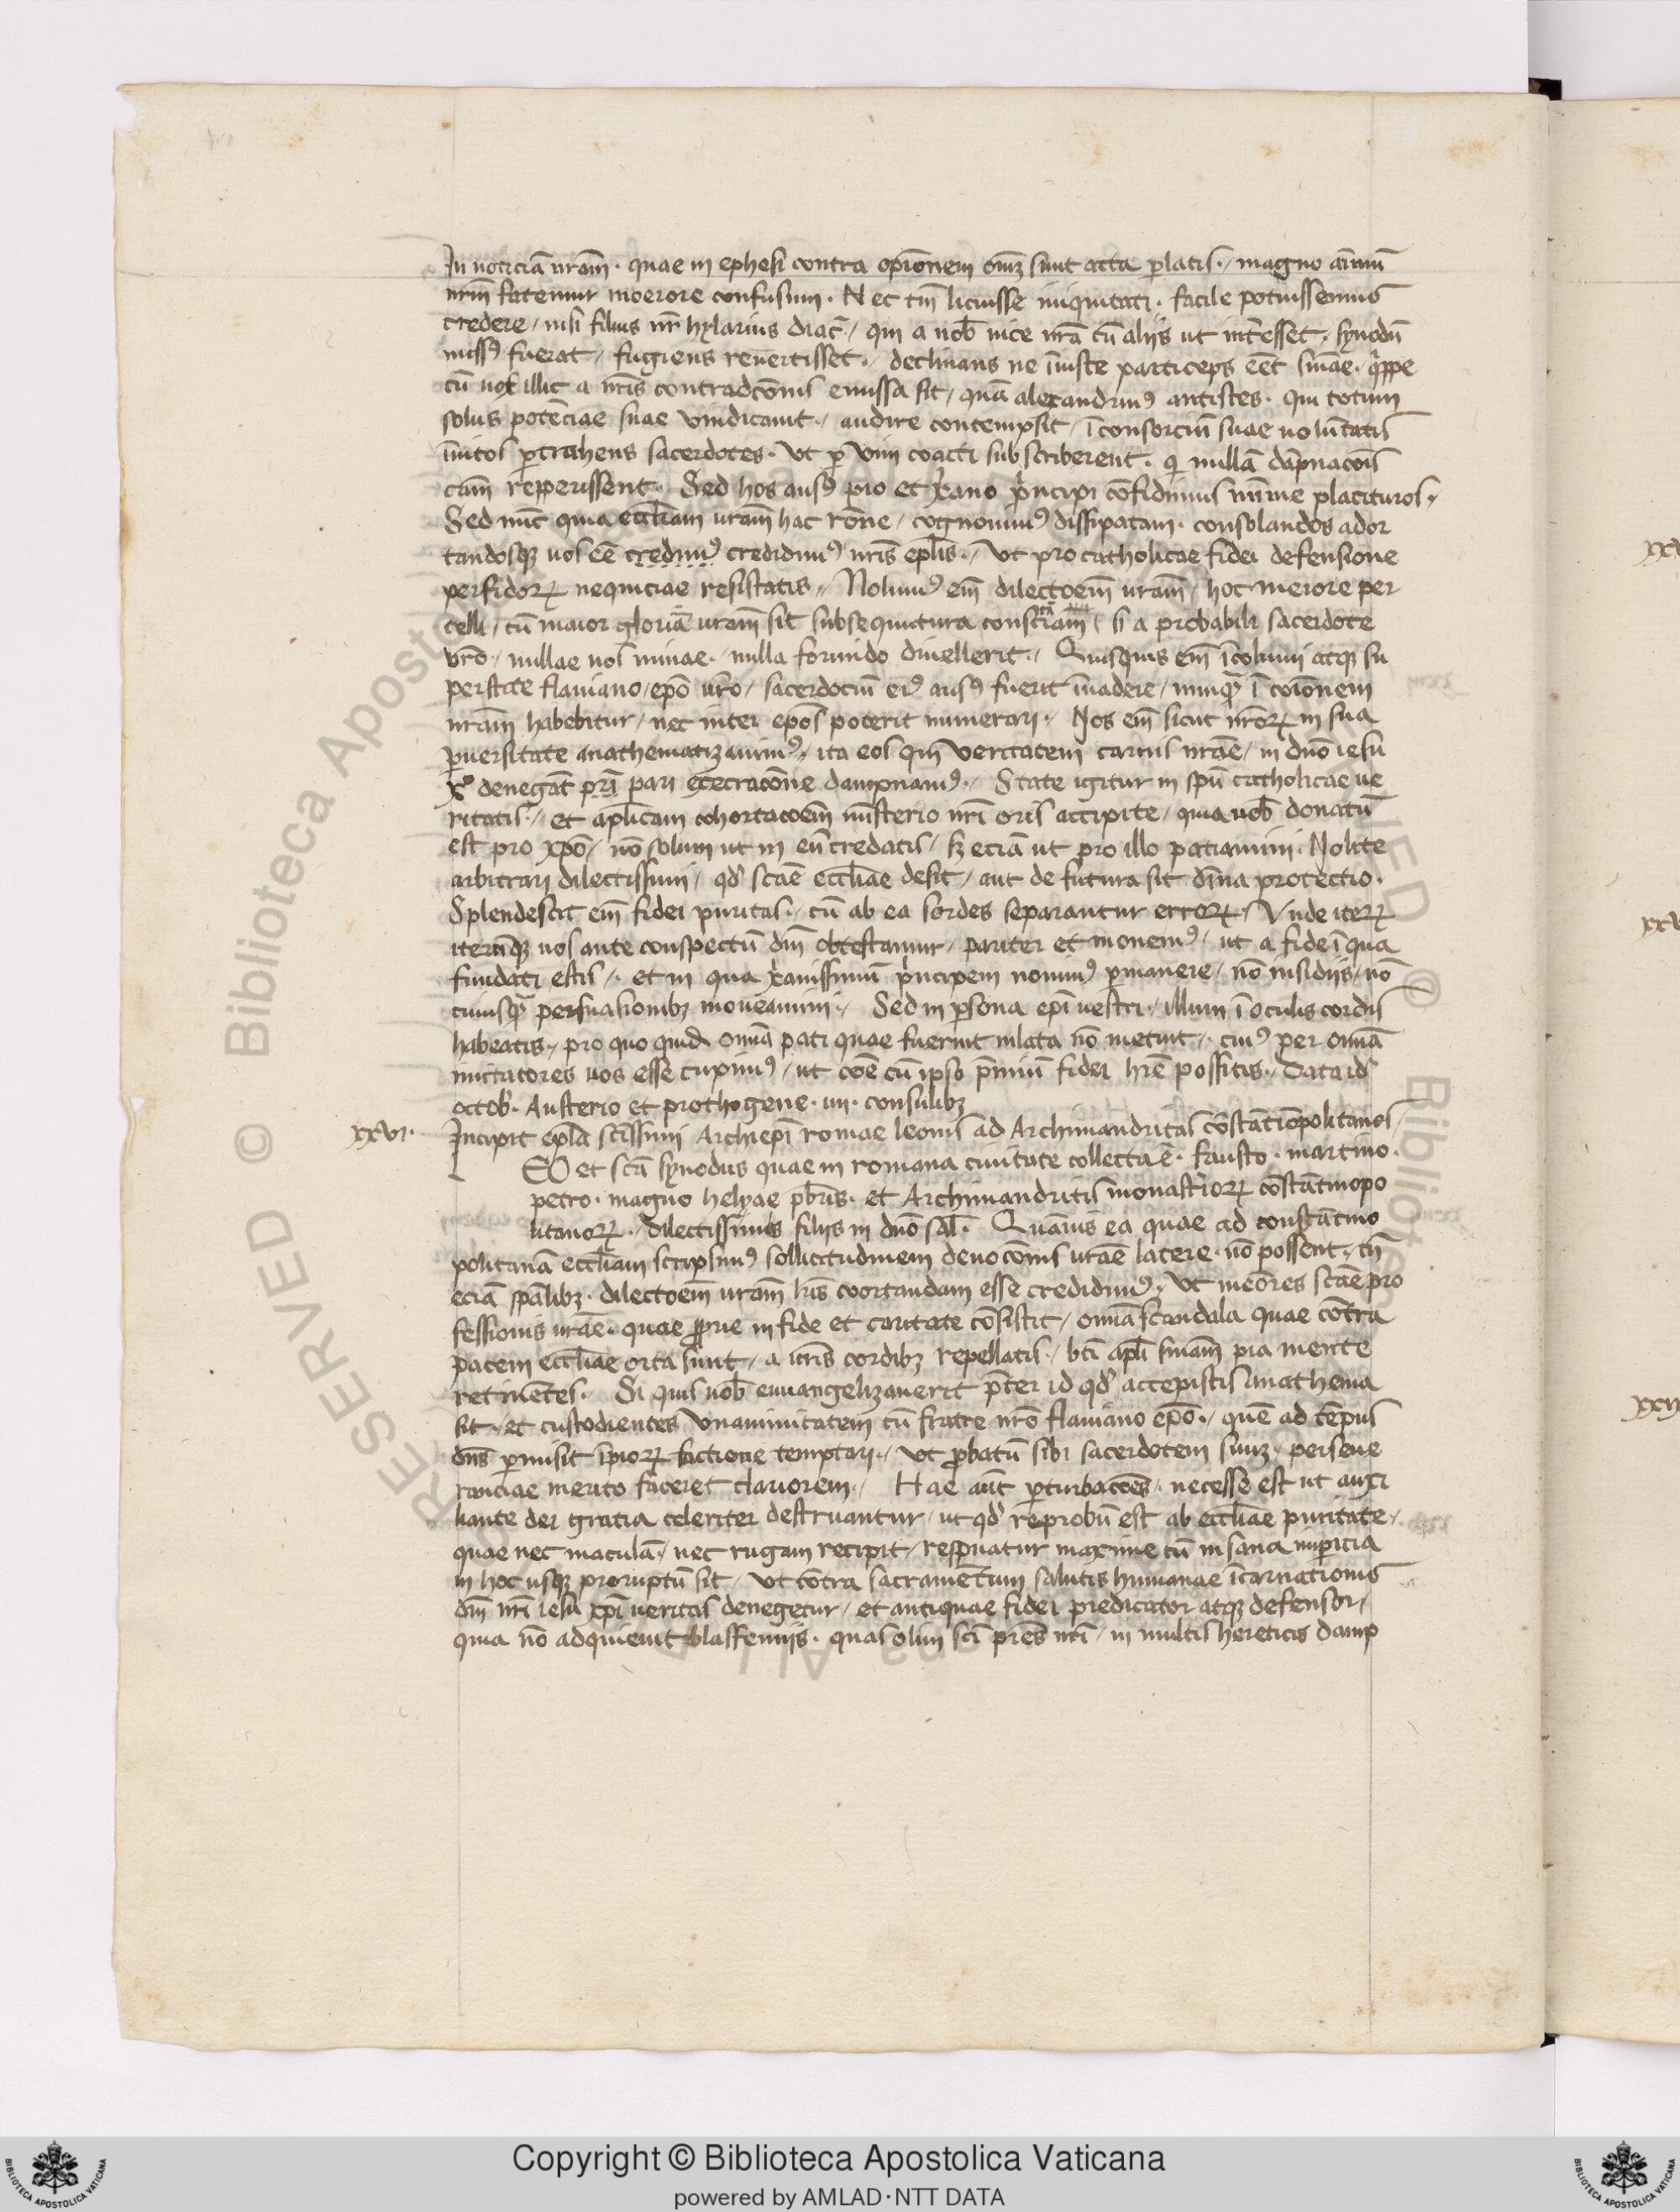 In noticiã nrãm · quae in ephesi contra opiõnem oniũ sunt acta p̱latis ·/ magno animũ
nrm̃ fatemur moerore confusum · Nec tm̃ licuisse iniquitati · facile potuissemus
credere / nisi filius nr̃ hylarius diac̃ / qui a nob̃ uice nrã cũ alijs ut int̃esset / synodũ
missꝰ fuerat / fugiens reuertisset ·/ declinans ne iniuste particeps eẽt sniãe · q̃ppe
cũ uox illic a nr̃is contradcõnis emissa sit / quã alexandrinꝰ antistes · qui totum
solus potẽciae suae vindicauit ·/ audire contempsit / ĩ consorciũ suae uolũtatis
ĩuitos p̱trahens sacerdotes · Vt p̱ vim coacti subscriberent · q̃ nullã dãpnacõis
cãm repperissent · Sed hos ausꝰ pio et xp̃ano p̃ncipi cõfidimus minime placituros ·/
Sed nũc quia eccl̃iam urãm hac rõne / cognouimꝰ dissipatam · consolandos ador
tandosqꝫ uos eẽ credimꝰ credidimꝰ nr̃is epl̃is ·/ Vt pro catholicae fidei defensione
perfidoꝝ nequiciae resistatis ·/ Nolumꝰ em̃ dilectoem̃ urãm / hoc merore per
celli / cũ maior gloriã urãm sit subsequutura constãciam / si a probabili sacerdote
vrõ / nullae uos minae ·/ nulla formido diuellerit ·/ Quisquis em̃ ĩcolumi atqꝫ su
perstite flauiano / epõ urõ / sacerdociũ eiꝰ ausꝰ fuerit inuadere / nunq̃ ĩ coiõnem
nrãm habebitur / nec inter epõs poterit numerari ·/ Nos em̃ sicut nr̃oꝝ in sua
p̱uersitate anathematizauimꝰ ·/ ita eos qui veritatem carnis nrãe / in dnõ iesu
xp̃o denegãt pri pari execracõne dampnamꝰ ·/ State igitur in spũ catholicae ue
ritatis ·/ et apl̃icam cohortacoem̃ mĩsterio nr̃i oris accipite / quia uob̃ donatũ
est pro xp̃o / nõ solum ut in eũ credatis / sꝫ eciã ut pro illo patiamini · Nolite
arbitrari dilectissimi / qd̃ scãe eccl̃iae desit / aut de futura sit dĩna protectio ·
Splendescit em̃ fidei puritas ·/ cũ ab ea sordes separantur erroꝝ ·/ Vnde iteꝝ
iterũqꝫ uos ante conspectũ dñi obtestamur / pariter et monemꝰ / ut a fide ĩ qua
fundati estis / et in qua xp̃anissimũ p̃ncipem nouimꝰ p̱manere / nõ insidijs / nõ
cuiusq̃ persuasionibꝫ moueamini ·/ Sed in p̱sona epĩ uestri ·/ illum ĩ oculis cordis
habeatis ·/ pro quo quid omĩa pati quae fuerint inlata nõ metuit ·/ cuiꝰ per omĩa
imitatores uos esse cupimꝰ / ut coẽ cũ ipso p̃miũ fidei hr̃e possitis ·/ Data id̃
octob̃ · Austerio et prothogene · uu · consulibꝫ
xxvi · Incipit epl̃a sc̃issimi Archiepĩ romae leonis ad Archimandritas cõstãtiõpolitanos /
EO et scã synodus quae in romana ciuitate collecta ẽ · fausto · martino ·
petro · magno helyae pbr̃is · et Archimandritis monast̃ioꝝ cõstãtinopo
litanoꝝ · dilectissimis filijs in dnõ sal̃ · Quãuis ea quae ad constãtino
politanã eccl̃iam scripsimꝰ sollicitudinem deuocõnis urãe latere · nõ possent · tñ
eciã sp̃alibꝫ · dilectoem̃ urãm lr̃is coortandam esse credidimꝰ · Vt meõres scãe pro
fessionis urãe · quae p̱prie in fide et caritate cõsistit / omĩa scandala quae cõtra
pacem eccl̃iae orta sunt / a ur̃is cordibꝫ repellatis ·/ bti apl̃i sniãm pia mente
retinẽtes · Si quis uob̃ euuangelizauerit p̃ter id qd̃ accepistis anathema
sit · et custodientes vnanimitatem cũ fratre nrõ flauiano epõ ·/ quẽ ad tẽpus
dns̃ p̱misit ĩpioꝝ factione temptari ·/ Vt p̱batũ sibi sacerdotem suũ · perseue
ranciae merito faceret clariorem ·/ Hae aũt p̱turbacoẽs · necesse est ut auxi
liante dei gratia celeriter destruantur / ut qd̃ reprobũ est ab eccl̃iae puritate /
quae nec maculã / nec rugam recipit / respuatur maxime cũ insana imp̱icia
in hoc usqꝫ proruptũ sit / Vt cõtra sacramẽtum salutis humanae ĩcarnationis
dñi nr̃i iesu xpĩ ueritas denegetur / et antiquae fidei predicator atqꝫ defensor /
quia nõ adquieuit blassemijs · quas olim sc̃i pr̃es nr̃i / in multis hereticis damp
Copyright © Biblioteca Apostolica Vaticana
powered by AMLAD·NTT DATA